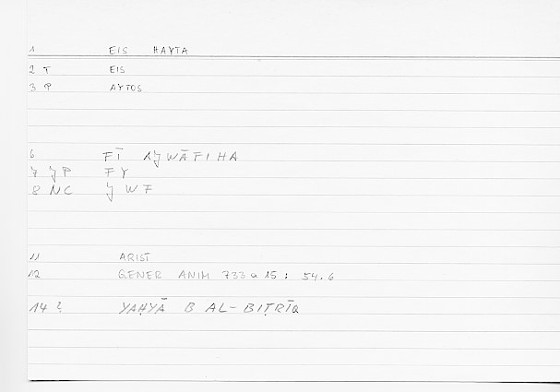 1 EIS HAYTA
2 T EIS
3 P AYTOS
6 FĪ
7 ỷ P FY
8 NC ỷ W F
11 ARIST
12 GENER ANIM 733 a 15 : 54.6
14 2 YAḤYĀ B AL-BIṬRĪQ